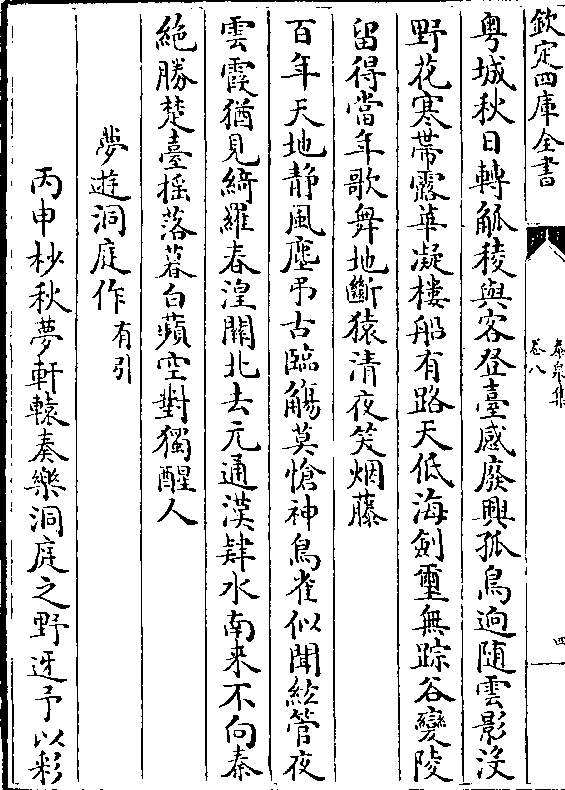 欽定四庫全書
泰泉集
卷八
四
粤城秋日轉觚稜與客登臺感廢興孤鳥逈隨雲影沒
野花寒帶露華凝樓船有路天低海劍璽無踪谷變陵
留得當年歌舞地斷猿清夜笑烟藤
百年天地静風塵弔古臨觴莫愴神鳥雀似聞絃管夜
雲霞猶見綺羅春湟關北去元通漢肄水南来不向秦
絶勝楚臺揺落暮白蘋空對獨醒人
夢遊洞庭作有引
丙申杪秋夢軒轅奏樂洞庭之野迓予以彩